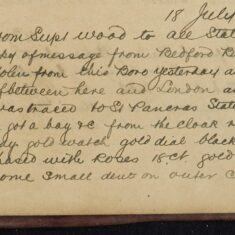 18 July
rom Supt Wood to all Stat
py of message from Bedford B
olen from this Boro yesterday a
f between here and London a
was traced to St Pancras State
got a bag &c from the cloak r
dy gold watch gold deal black
hased with Roses 18 ct. gold
ome small dents on outer c